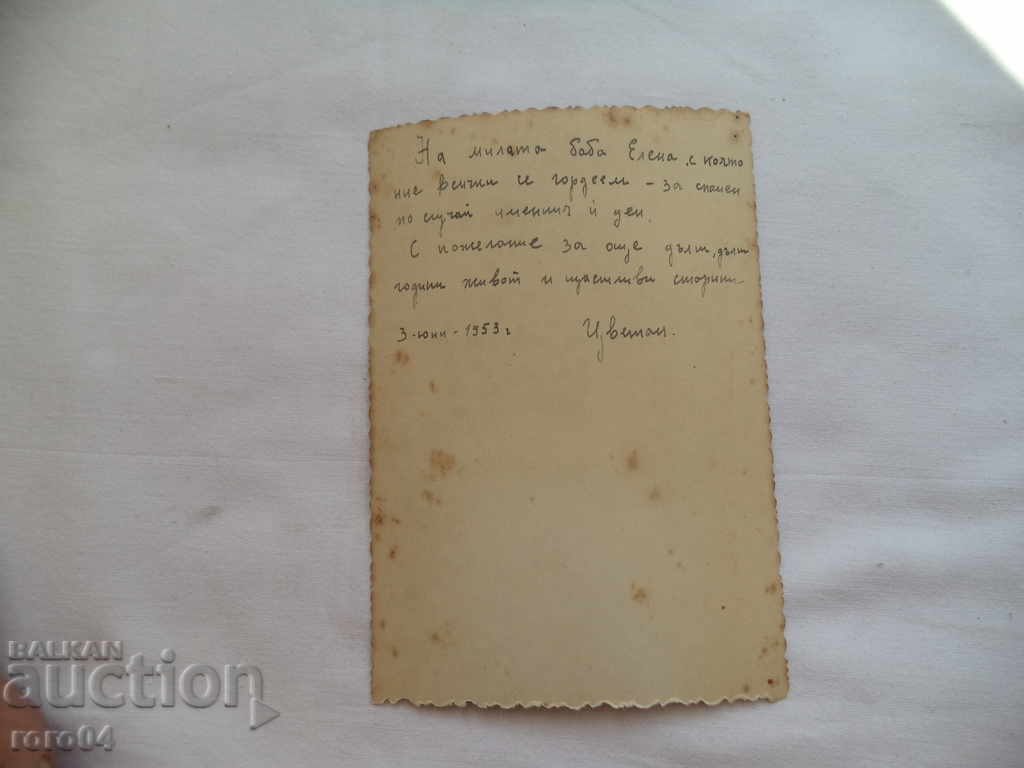 На милата баба Елена, с която
ние всички се гордеем - за спомен
по случай именния ѝ ден.
С пожелание за още дълги, дълги
години живот и щастливи старини
3-юни-1953 г
Цветан.
BALKAN
auction
roro04